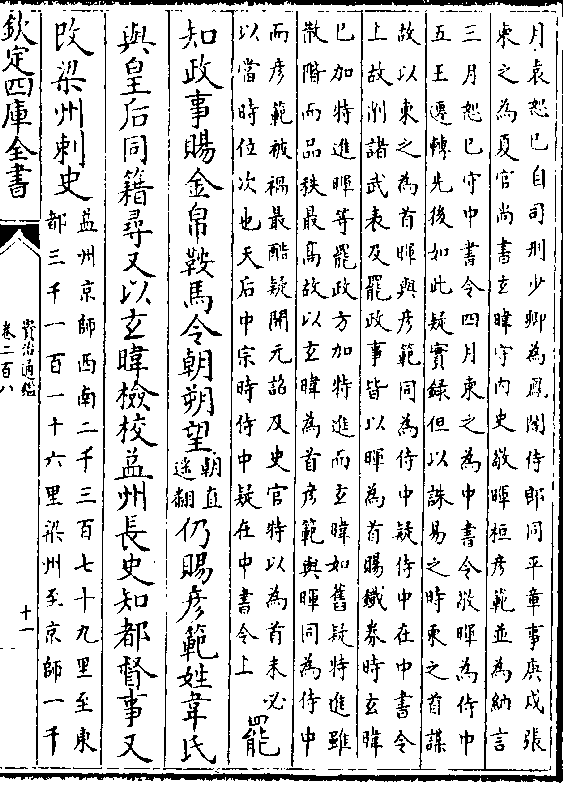 月袁恕己自司刑少卿為鳳閣侍郎同平章事庚戌張
柬之為夏官尚書玄暐守内史敬暉桓彥範並為納言
三月恕己守中書令四月柬之為中書令敬暉為侍中
五王遷轉先後如此疑實錄但以誅易之時柬之首謀
故以柬之為首暉與彥範同為侍中疑侍中在中書令
上故削諸武表及罷政事皆以暉為首賜鐵券時玄暐
已加特進暉等罷政方加特進而玄暐如舊疑特進雖
散階而品秩最高故以玄暐為首彥範與暉同為侍中
而彥範被禍最酷疑開元詔及史官特以為首未必
以當時位次也天后中宗時侍中疑在中書令上
罷
知政事賜金帛鞍馬令朝朔望
朝直
遥翻
仍賜彥範姓韋氏
與皇后同籍尋又以玄暐檢校益州長史知都督事又
改梁州刺史
益州京師西南二千三百七十九里至東
都三千一百一十六里梁州至京師一千
欽定四庫全書
資治通鑑
卷二百八
十一